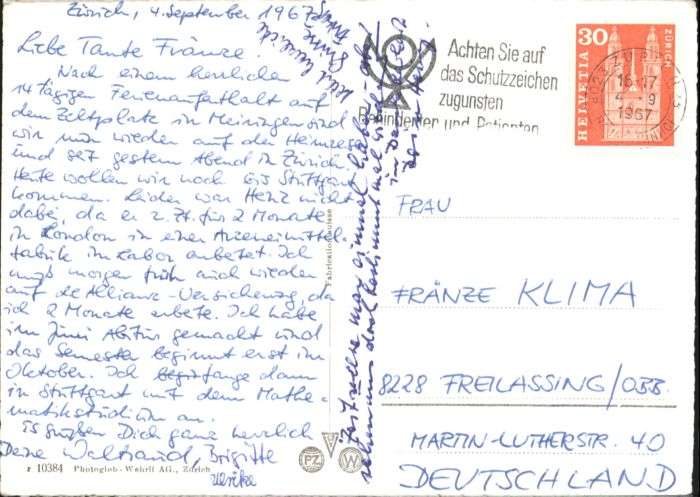 Zürich, 4. September 1967
Liebe Tante Fränze!
Nach einem herrlichen
14tägigen Ferienaufenthalt auf
dem Zeltplatz in Meiringen sind
wir nun wieder auf der Heimreise
und seit gestern Abend in Zürich.
Heute wollen wir noch bis Stuttgart
kommen. Leider war Heinz nicht
dabei, da er z. Zt. für 2 Monate
in London in einer Arzneimittel-
fabrik im Labor arbeitet. Ich
muß morgen früh auch wieder
auf die Allianz-Versicherung, da
ich 2 Monate arbeite. Ich habe
im Juni Abitur gemacht und
das Semester beginnt erst im
Oktober. Ich fange dann
in Stuttgart mit dem Mathe-
matikstudium an.
Es grüßen Dich ganz herzlich
Deine Waltraud, Brigitte
Ulrike
r 10384 Photoglob-Wehrli AG., Zürich
Fabrication suisse
PZ W
Achten Sie auf
das Schutzzeichen
zugunsten
Behinderter und Patienten
30
HELVETIA
ZÜRICH
16-17
4. 9
1967
FRAU
FRÄNZE KLIMA
8228 FREILASSING/OBB.
MARTIN-LUTHERSTR. 40
DEUTSCHLAND